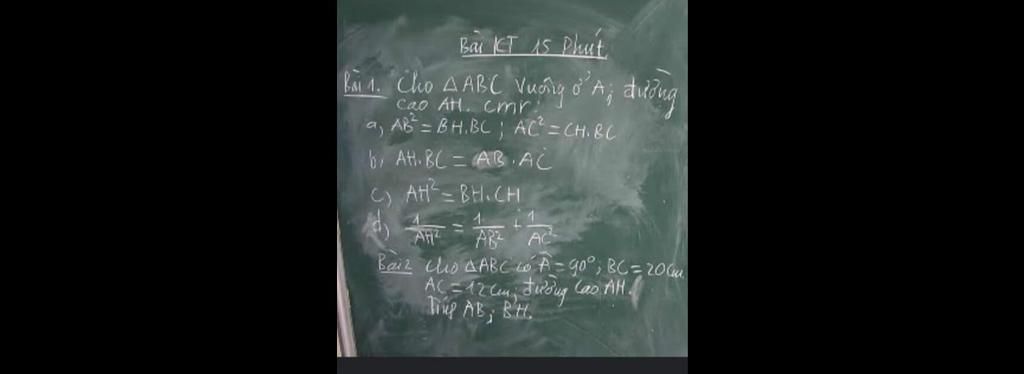 Bài KT 15 Phút
Bài 1. Cho △ABC Vuông ở A; đường
cao AH. cmr:
a, AB² = BH.BC ; AC² = CH.BC
b, AH.BC = AB.AC
c) AH² = BH.CH
d, 1/AH² = 1/AB² + 1/AC²
Bài 2 Cho △ABC có Â = 90°, BC = 20cm
AC = 12cm, đường cao AH.
Tính AB; BH.